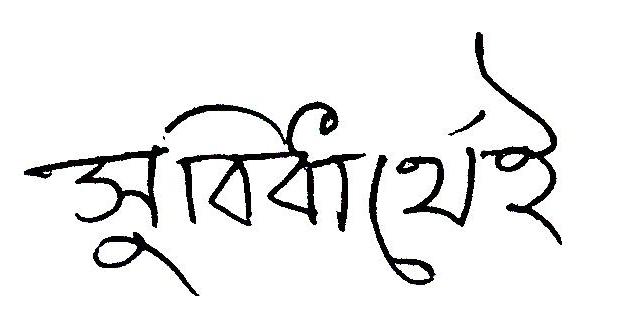 সুবিধার্থেই